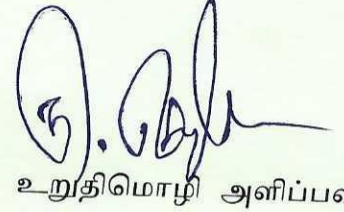 உறுதிமொழி அளிப்பவ